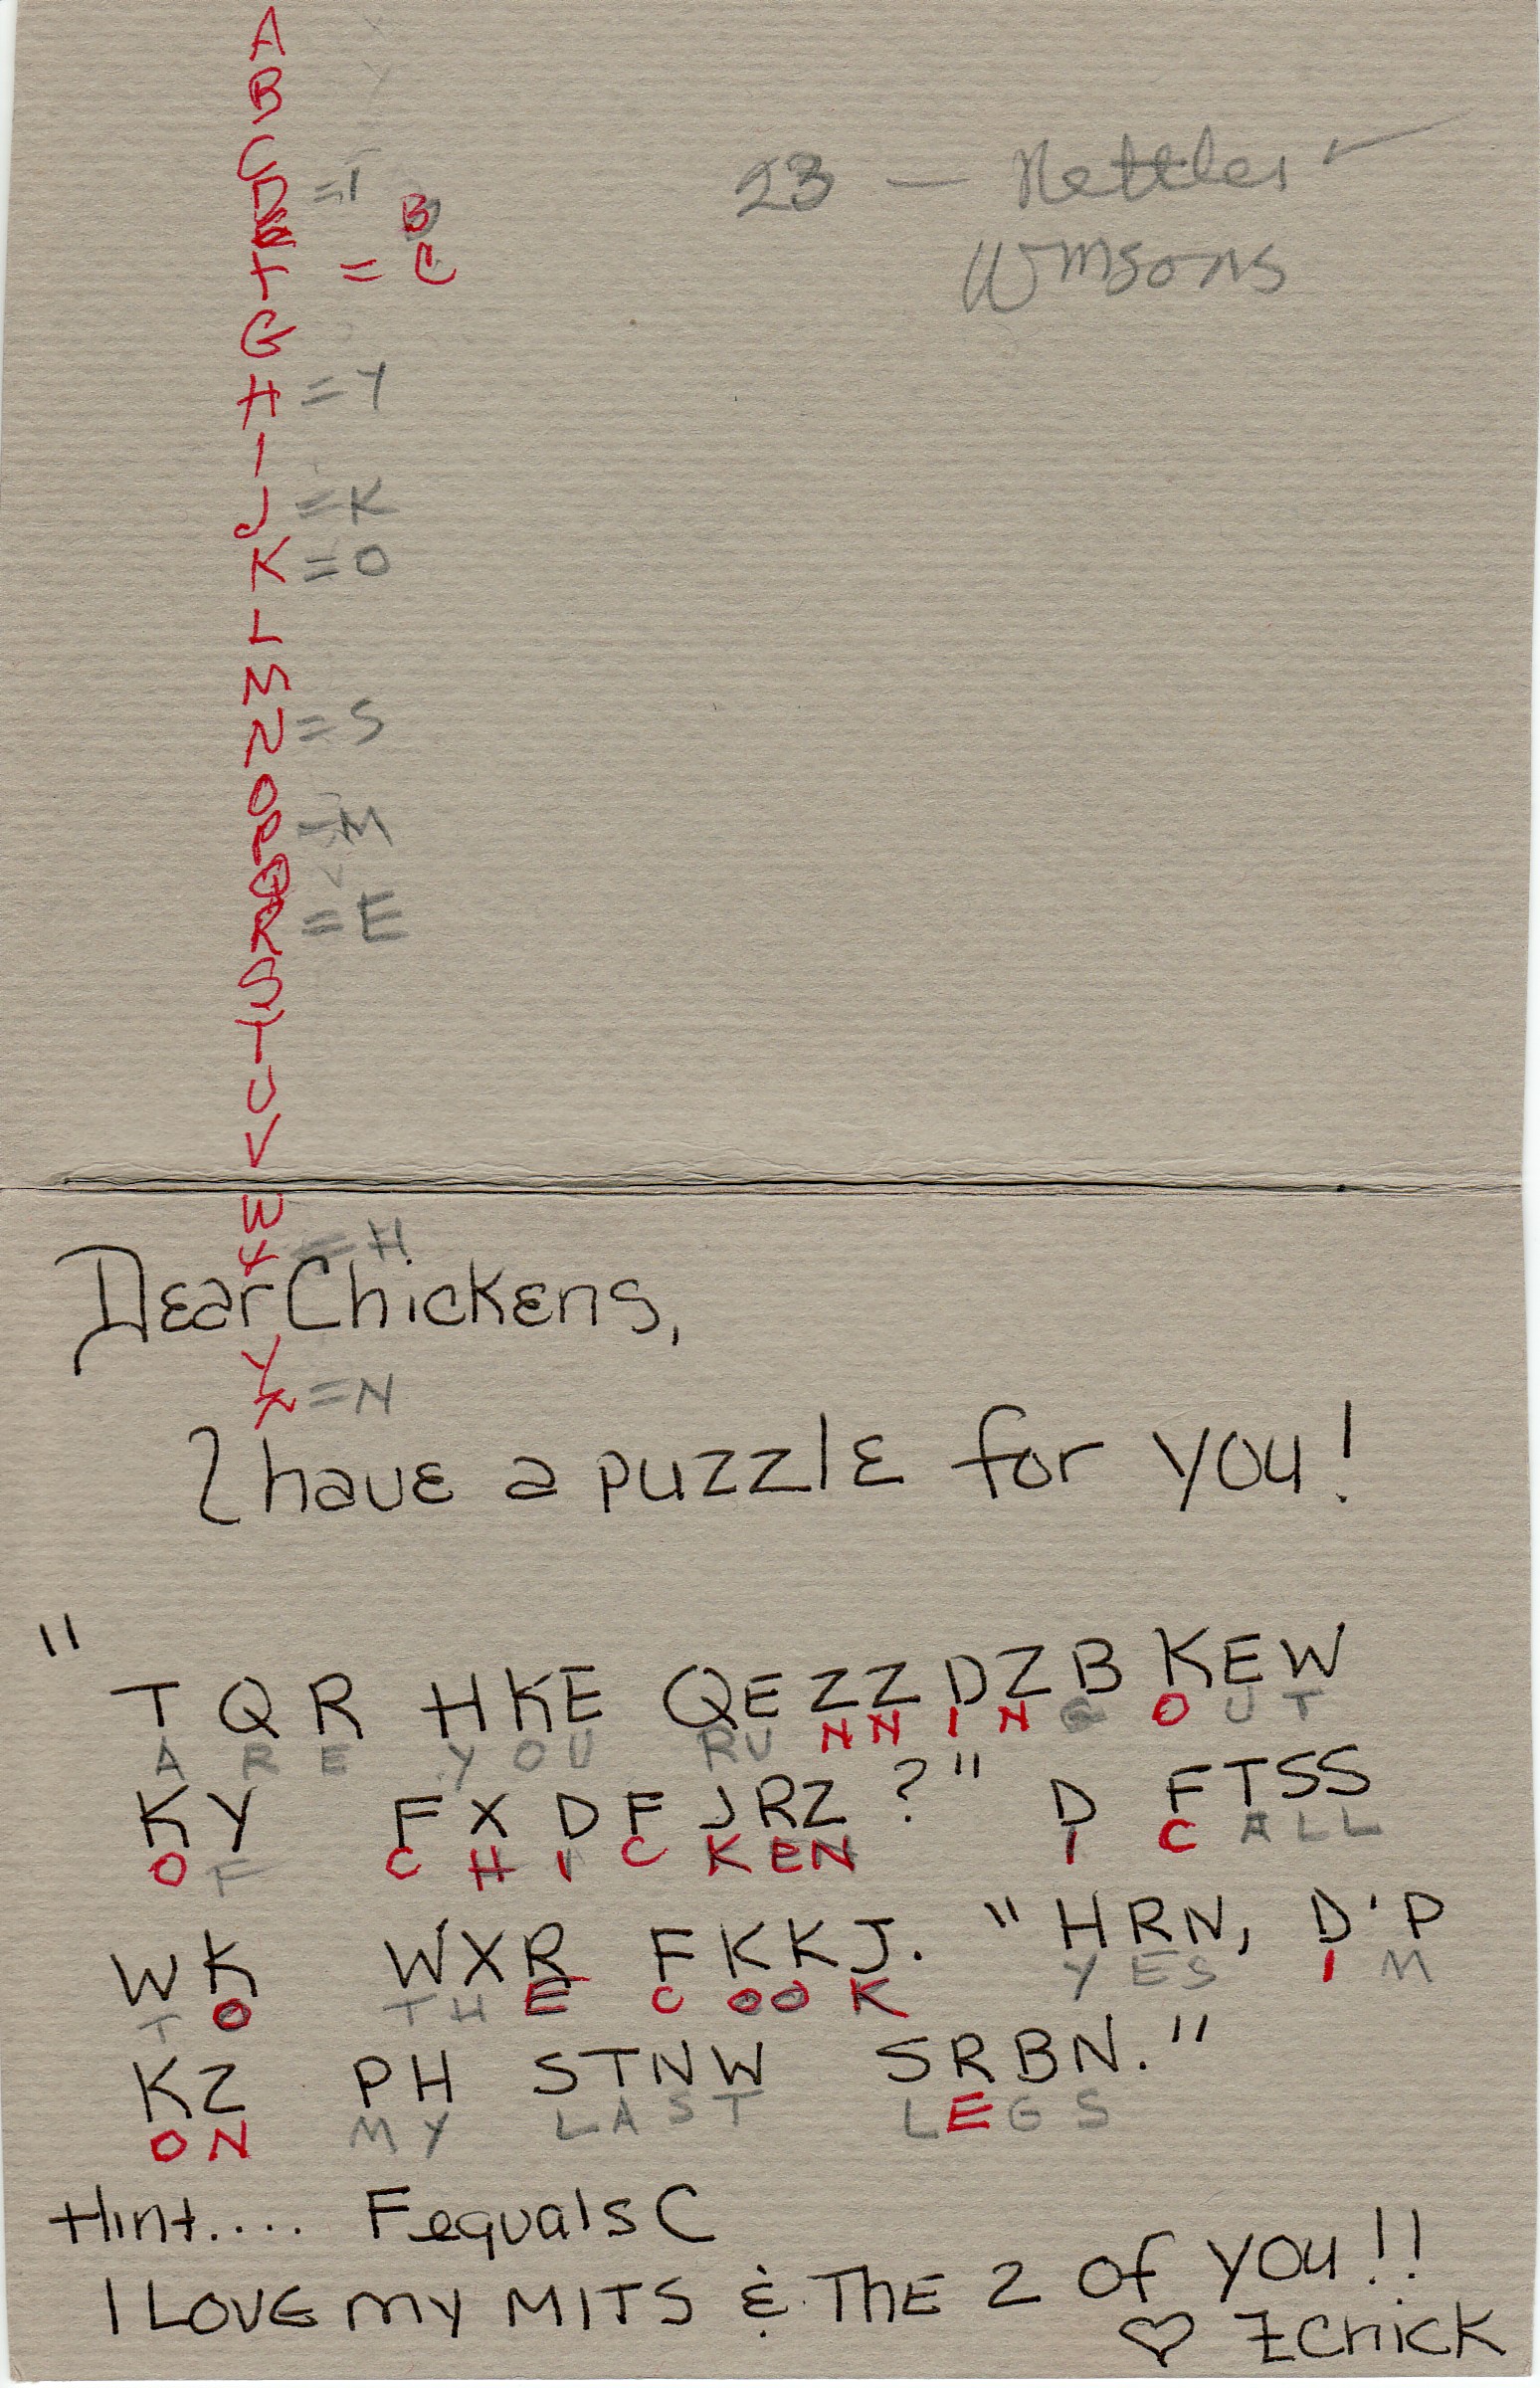 A
B
C
D = I
E B
F = C
G
H = Y
I
J = K
K = O
L
M
N = S
O
P - M
Q
R = E
S
T
U
V
W
X = H
Y
Z = N
23 — Nettles
Wmsons
Dear Chickens,
I have a puzzle for you!
" TQR HKE QEZZDZB KEW
ARE YOU RUNNING OUT
KY FXDFJRZ ?" D FTSS
OF CHICKEN I CALL
WK WXR FKKJ. "HRN, D'P
TO THE COOK YES I M
KZ PH STNW SRBN."
ON MY LAST LEGS
Hint.... F equals C
I LOVE my MITS & THE 2 of you!!
♡ ZChick